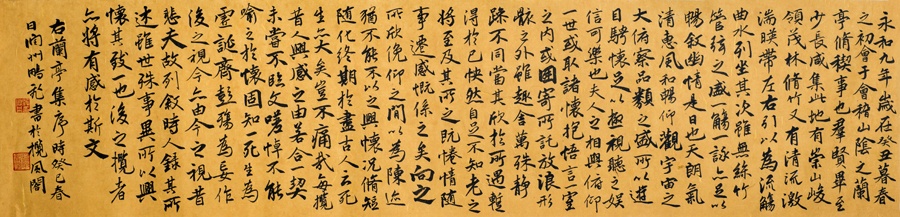 永和九年歲在癸丑暮春
之初會于會稽山陰之蘭
亭脩稧事也群賢畢至
少長咸集此地有崇山峻
領茂林脩竹又有清流激
湍暎帶左右引以為流觴
曲水列坐其次雖無絲竹
管弦之盛一觴一詠亦足以
暢敘幽情是日也天朗氣
清惠風和暢仰觀宇宙之
大俯察品類之盛所以遊
目騁懷足以極視聽之娛
信可樂也夫人之相與俯仰
一世或取諸懷抱悟言一室
之內或因寄所託放浪形
骸之外雖趣舍萬殊靜
躁不同當其欣於所遇暫
得於己快然自足不知老之
將至及其所之既惓情隨
事遷感慨係之矣向之
所欣俛仰之間以為陳迹
猶不能不以之興懷況脩短
隨化終期於盡古人云死
生亦大矣豈不痛哉每攬
昔人興感之由若合一契
未嘗不臨文嗟悼不能
喻之於懷固知一死生為
虛誕齊彭殤為妄作
後之視今亦由今之視昔
悲夫故列敘時人錄其所
述雖世殊事異所以興
懷其致一也後之攬者
亦將有感於斯文
右蘭亭集序時癸巳春
日書於攬風閣